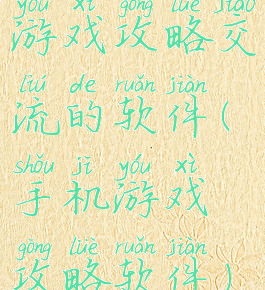 yóu xì gōng lüè jiāo
游戏攻略交
liú de ruǎn jiàn
流的软件(
shǒu jī yóu xì
手机游戏
gōng lüè ruǎn jiàn
攻略软件)